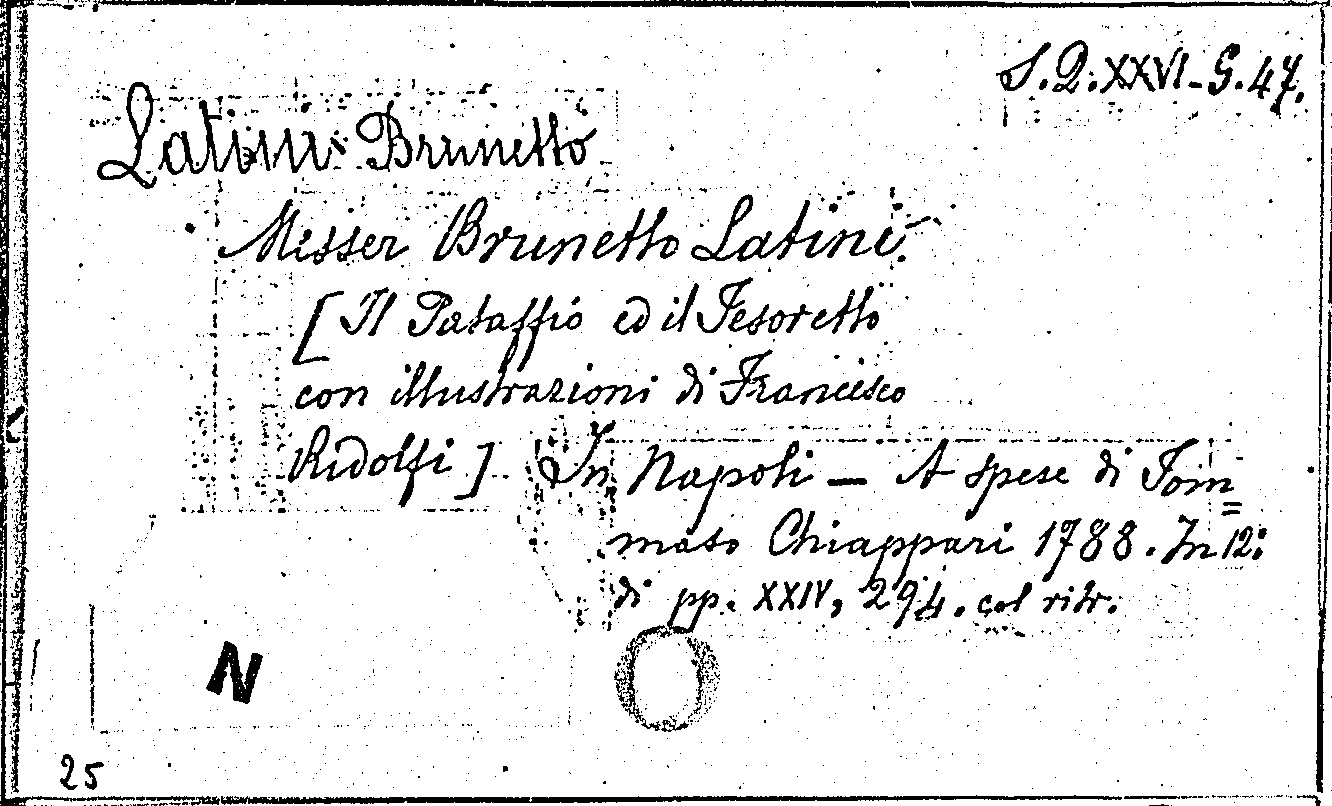 S.Q.XXVI-G.47.
Latini Brunetto
Messer Brunetto Latini.
[Il Pataffio ed il Tesoretto
con illustrazioni di Francesco
Ridolfi] In Napoli — A spese di Tom=
maso Chiappari 1788. In 12:
di pp. XXIV, 294. col ritr.
N
25